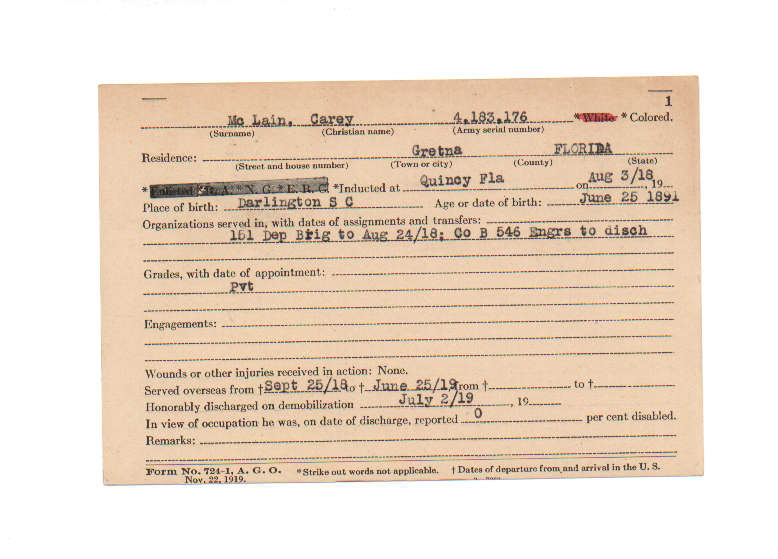 1
Mc Lain, Carey 4,183,176 *White *Colored.
(Surname) (Christian name) (Army serial number)
Residence: Gretna FLORIDA
(Street and house number) (Town or city) (County) (State)
*Enlisted *R. A. *N. G. *E. R. C. *Inducted at Quincy Fla on Aug 3/18, 19
Place of birth: Darlington S C Age or date of birth: June 25 1891
Organizations served in, with dates of assignments and transfers:
151 Dep Brig to Aug 24/18; Co B 546 Engrs to disch
Grades, with date of appointment:
Pvt
Engagements:
Wounds or other injuries received in action: None.
Served overseas from †Sept 25/18 to † June 25/19 from † to †
Honorably discharged on demobilization July 2/19, 19
In view of occupation he was, on date of discharge, reported 0 per cent disabled.
Remarks:
Form No. 724-1, A. G. O. *Strike out words not applicable. † Dates of departure from and arrival in the U. S.
Nov. 22, 1919.